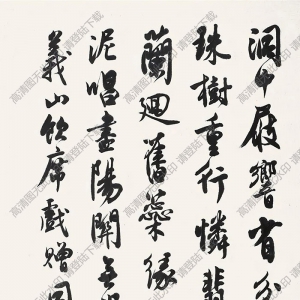 洞中屐響省分
珠樹重行憐翡
蘭廻舊蘂緣
泥唱盡陽關無
義山飲席戲贈同